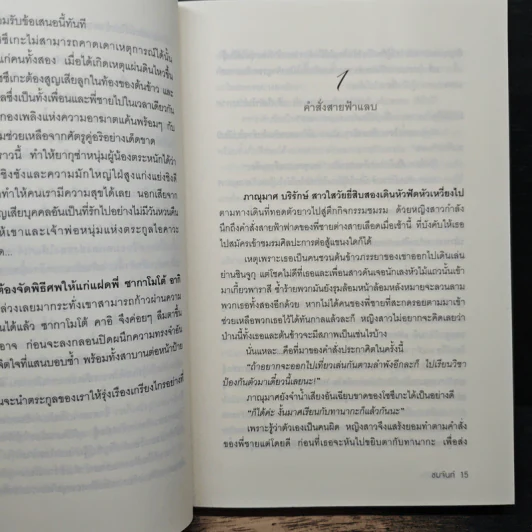 มรับข้อเสนอนี้ทันที
ซซึเกะไม่สามารถคาดเดาเหตุการณ์ได้นั้น
แก่คนทั้งสอง เมื่อได้เกิดเหตุแผ่นดินไหวขึ้น
ซึเกะต้องสูญเสียลูกในท้องของต้นข้าว และ
ลซึ่งเป็นทั้งเพื่อนและพี่ชายไปในเวลาเดียวกัน
กองเพลิงแห่งความอาฆาตแค้นพร้อมๆ กับ
มช่วยเหลือจากศัตรูคู่อริอย่างเด็ดขาด
ราวนี้ ทำให้ยากูซ่าหนุ่มผู้น้องตระหนักได้ว่า
ชิงชังและความมักใหญ่ใฝ่สูงแก่งแย่งชิงดี
ทำให้คนเรามีความสุขได้เลย นอกเสียจาก
ญเสียบุคคลอันเป็นที่รักไปอย่างไม่มีวันหวนคืน
ให้เขาและเจ้าพ่อหนุ่มแห่งตระกูลไอควาวะ
ต...
ต้องจัดพิธีศพให้แก่แฝดพี่ ซากาโมโต้ อากิ
ล่วงเลยมากระทั่งเขาสามารถก้าวผ่านความ
นได้แล้ว ซากาโมโต้ คาอิ จึงค่อยๆ ลืมตาขึ้น
อาจ ก่อนจะลงกลอนปิดผนึกความทรงจำอัน
จิตใจที่แสนบอบช้ำ พร้อมทั้งสาบานต่อหน้าป้าย
นจะนำตระกูลของเราให้รุ่งเรืองเกรียงไกรอย่างที่
1
คำสั่งสายฟ้าแลบ
ภาณุมาศ บริรักษ์ สาวใสวัยยี่สิบสองเดินหัวฟัดหัวเหวี่ยงไป
ตามทางเดินที่ทอดตัวยาวไปสู่ตึกกิจกรรมชมรม ด้วยหญิงสาวกำลัง
นึกถึงคำสั่งสายฟ้าฟาดของพี่ชายต่างสายเลือดเมื่อเช้านี้ ที่บังคับให้เธอ
ไปสมัครเข้าชมรมศิลปะการต่อสู้แขนงใดก็ได้
เหตุเพราะเธอเป็นคนชวนต้นข้าวภรรยาของเขาออกไปเดินเล่น
ย่านชินจูกุ แต่โชคไม่ดีที่เธอและเพื่อนสาวดันเจอนักเลงหัวไม้แถวนั้นเข้า
มาเกี้ยวพาราสี ซ้ำร้ายพวกมันยังรุมล้อมหน้าล้อมหลังหมายจะลวนลาม
พวกเธอทั้งสองอีกด้วย หากไม่ได้คนของพี่ชายที่สะกดรอยตามมาเข้า
ช่วยเหลือพวกเธอไว้ได้ทันกาลแล้วละก็ หญิงสาวไม่อยากจะคิดเลยว่า
ป่านนี้ทั้งเธอและต้นข้าวจะมีสภาพเป็นเช่นไรบ้าง
นั่นแหละ...คือที่มาของคำสั่งประกาศิตในครั้งนี้
“ถ้าอยากจะออกไปเที่ยวเล่นกันตามลำพังอีกละก็ ไปเรียนวิชา
ป้องกันตัวมาเดี๋ยวนี้เลยนะ!”
ภาณุมาศยังจำน้ำเสียงอันเฉียบขาดของโซซึเกะได้เป็นอย่างดี
“ก็ได้ค่ะ งั้นมาศเรียนกับทานากะก็แล้วกันนะ”
เพราะรู้ว่าตัวเองเป็นคนผิด หญิงสาวจึงแสร้งยอมทำตามคำสั่ง
ของพี่ชายแต่โดยดี ก่อนที่เธอจะหันไปขยิบตากับทานากะ เพื่อส่ง
ซมจันท์ 15